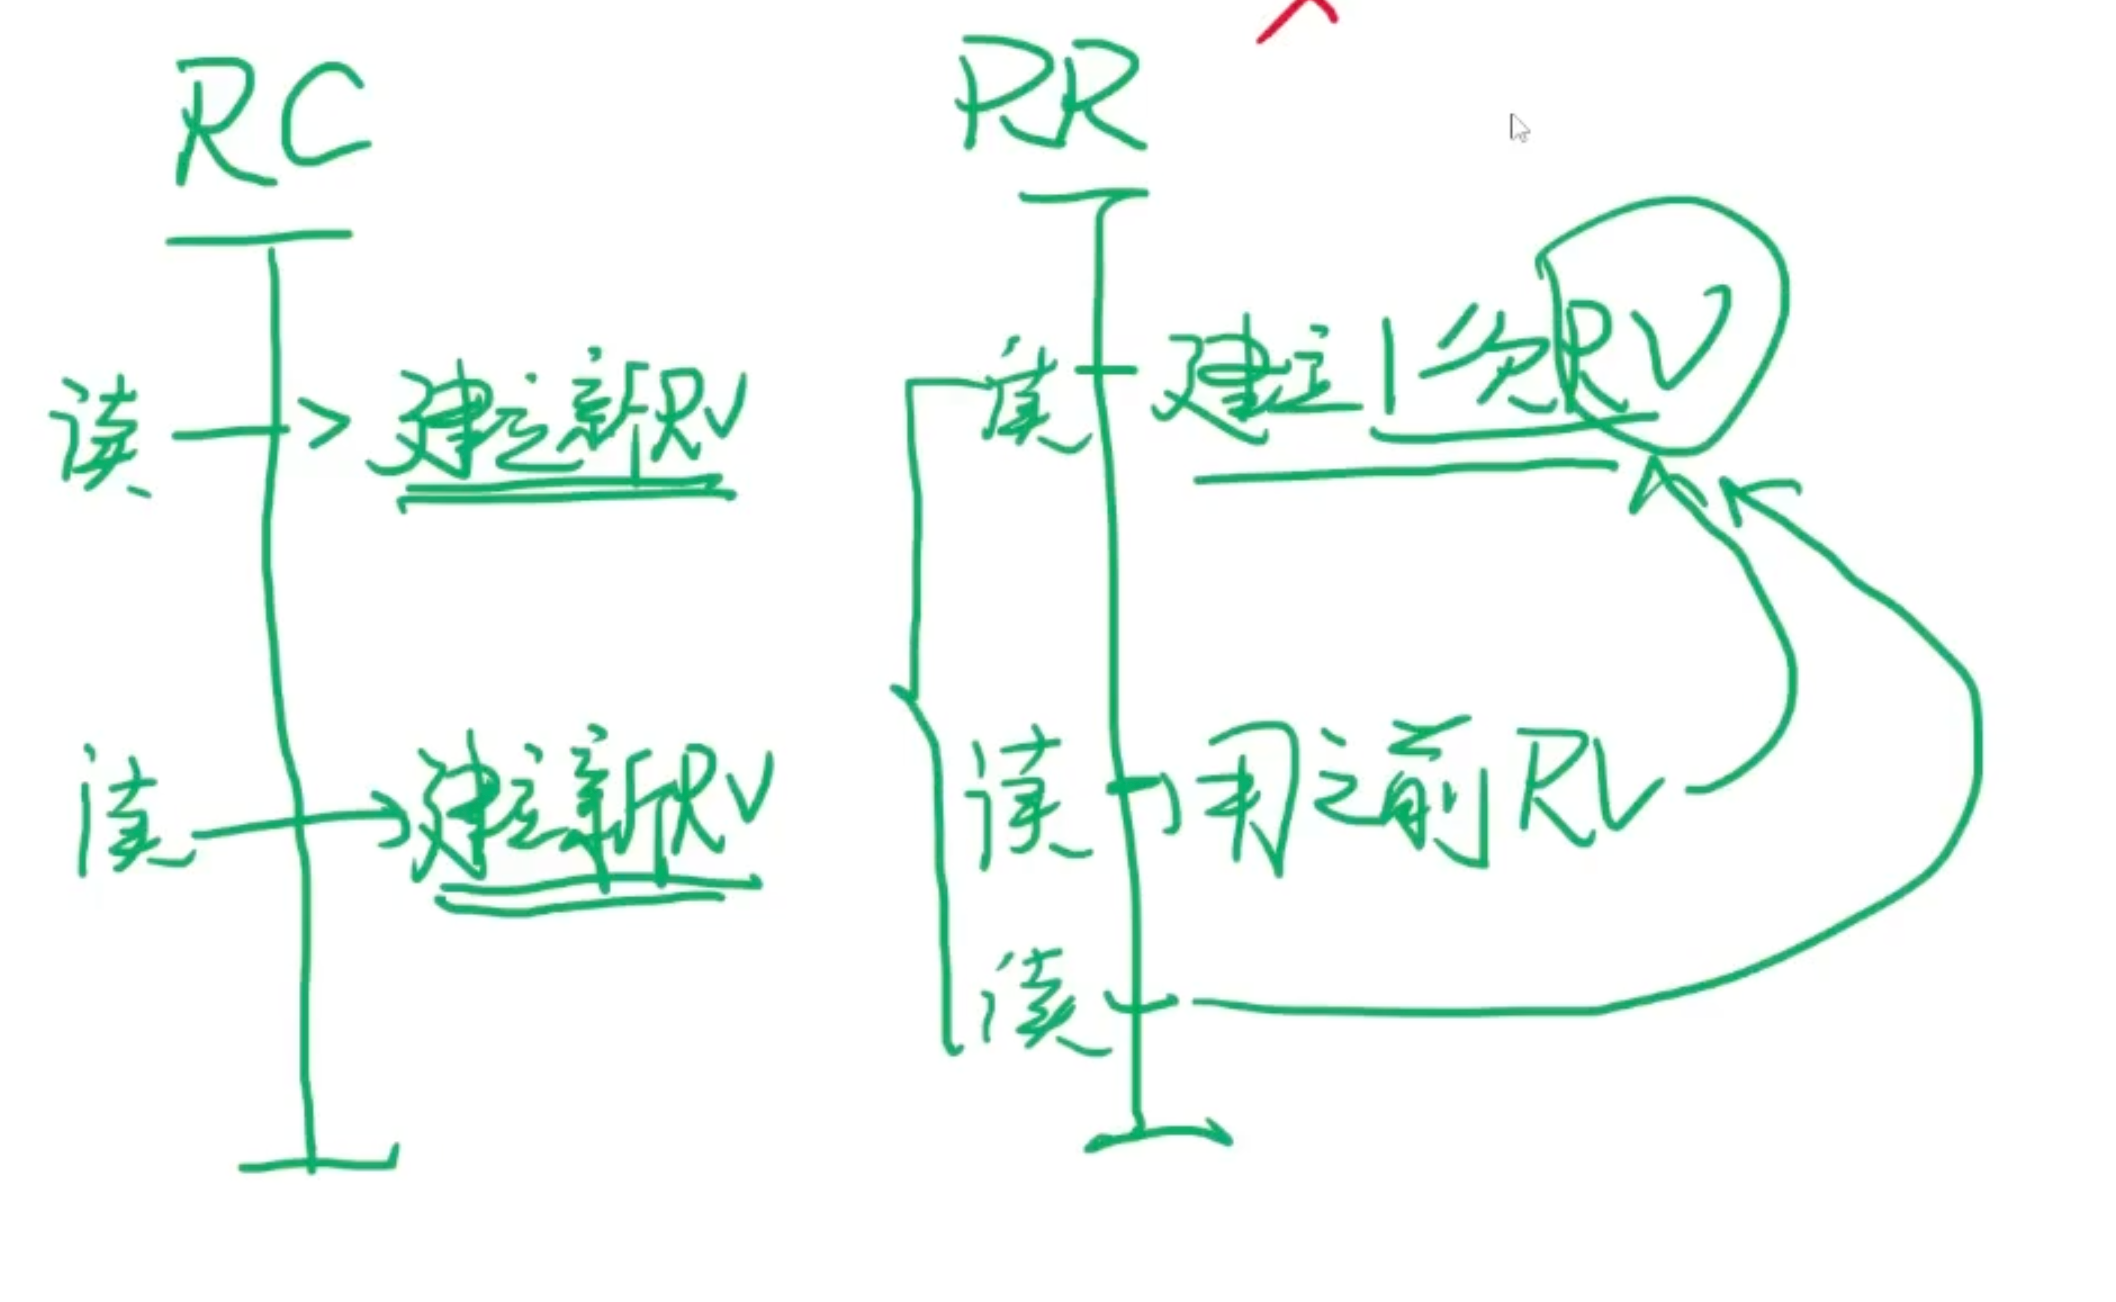 RC
读 建立新RV
读 建立新RV
RR
读 建立1次RV
读 用之前RV
读